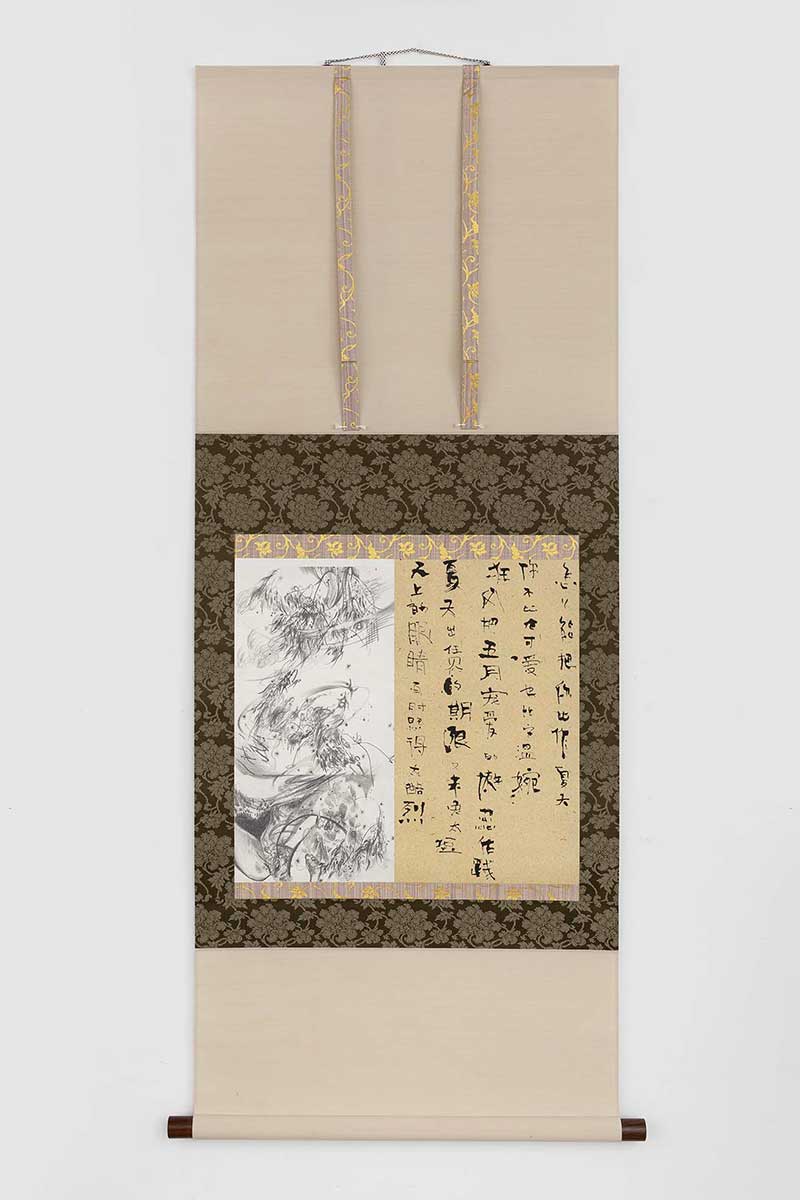 怎么能把你比作夏天
你不比它可爱也比它温婉
狂风把五月宠爱的嫩蕊作践
夏天出赁的期限又未免太短
天上的眼睛有时照得太酷烈